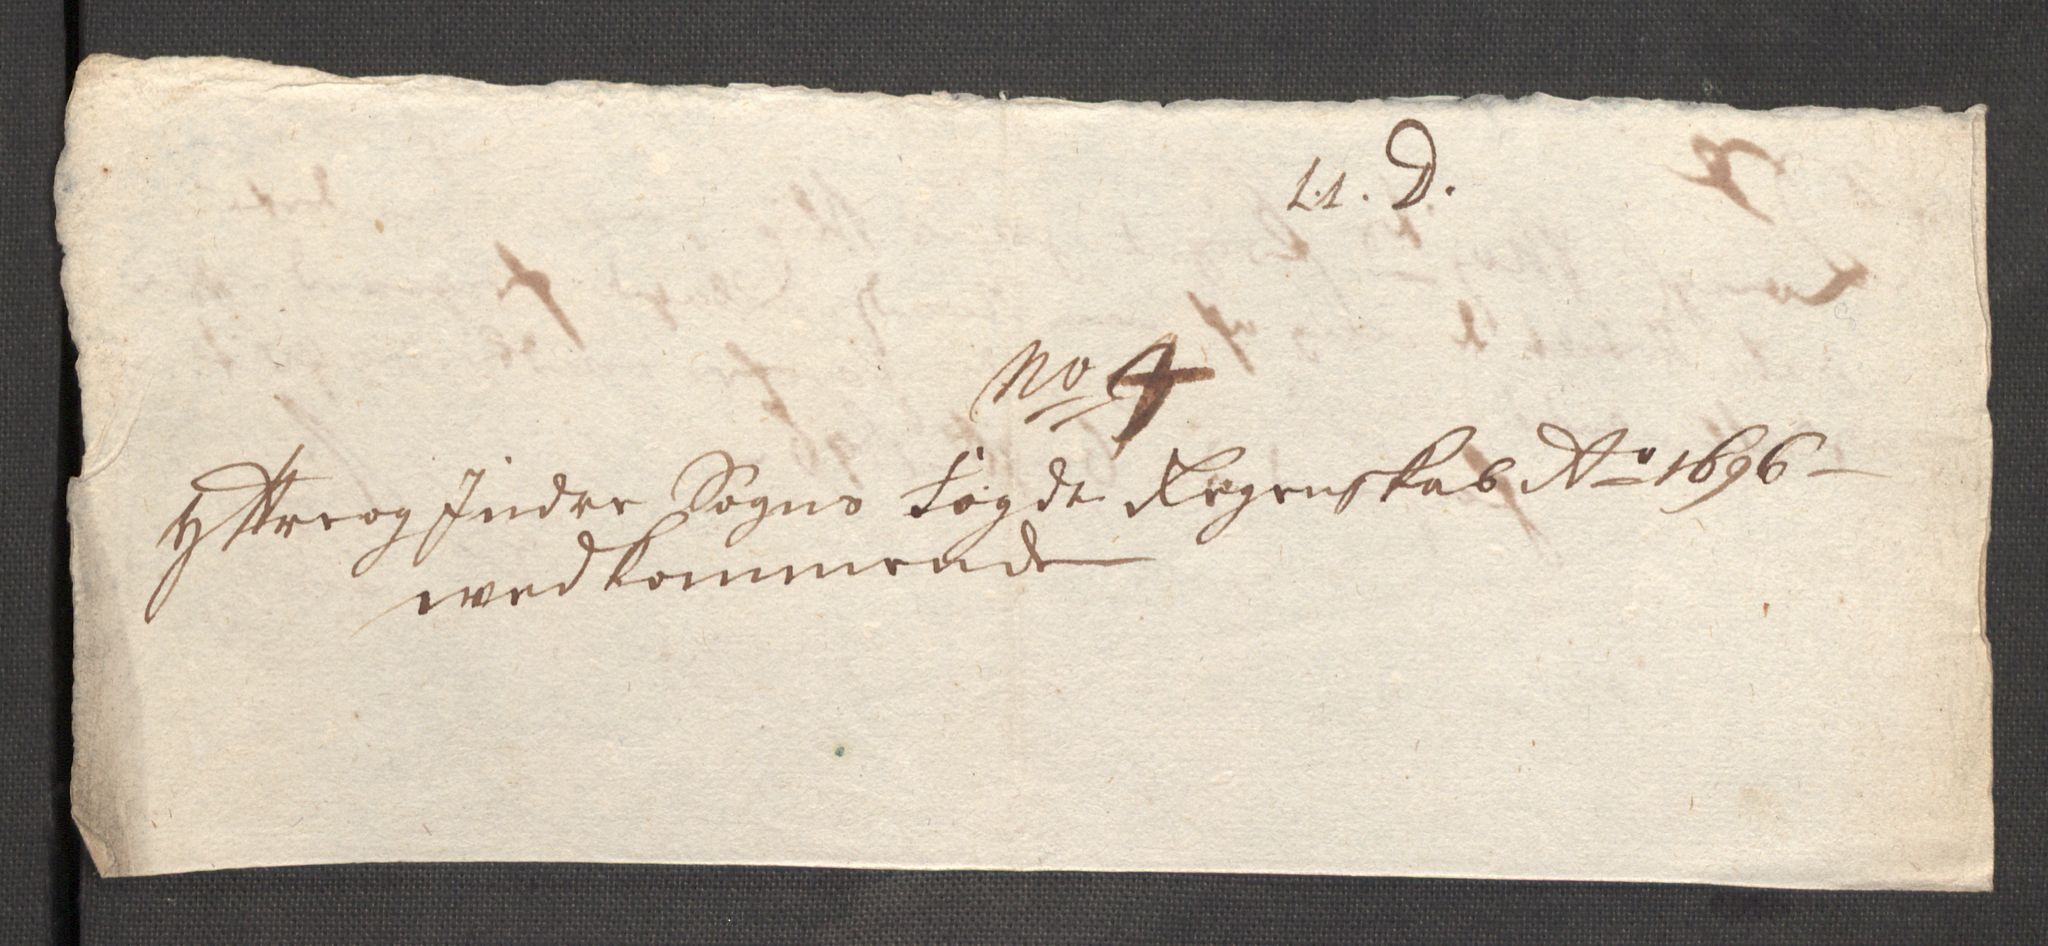 Lt. D.
No 4
Yttre og Indre Sogns Fogde Regenskab Ao 1696
wedkommende